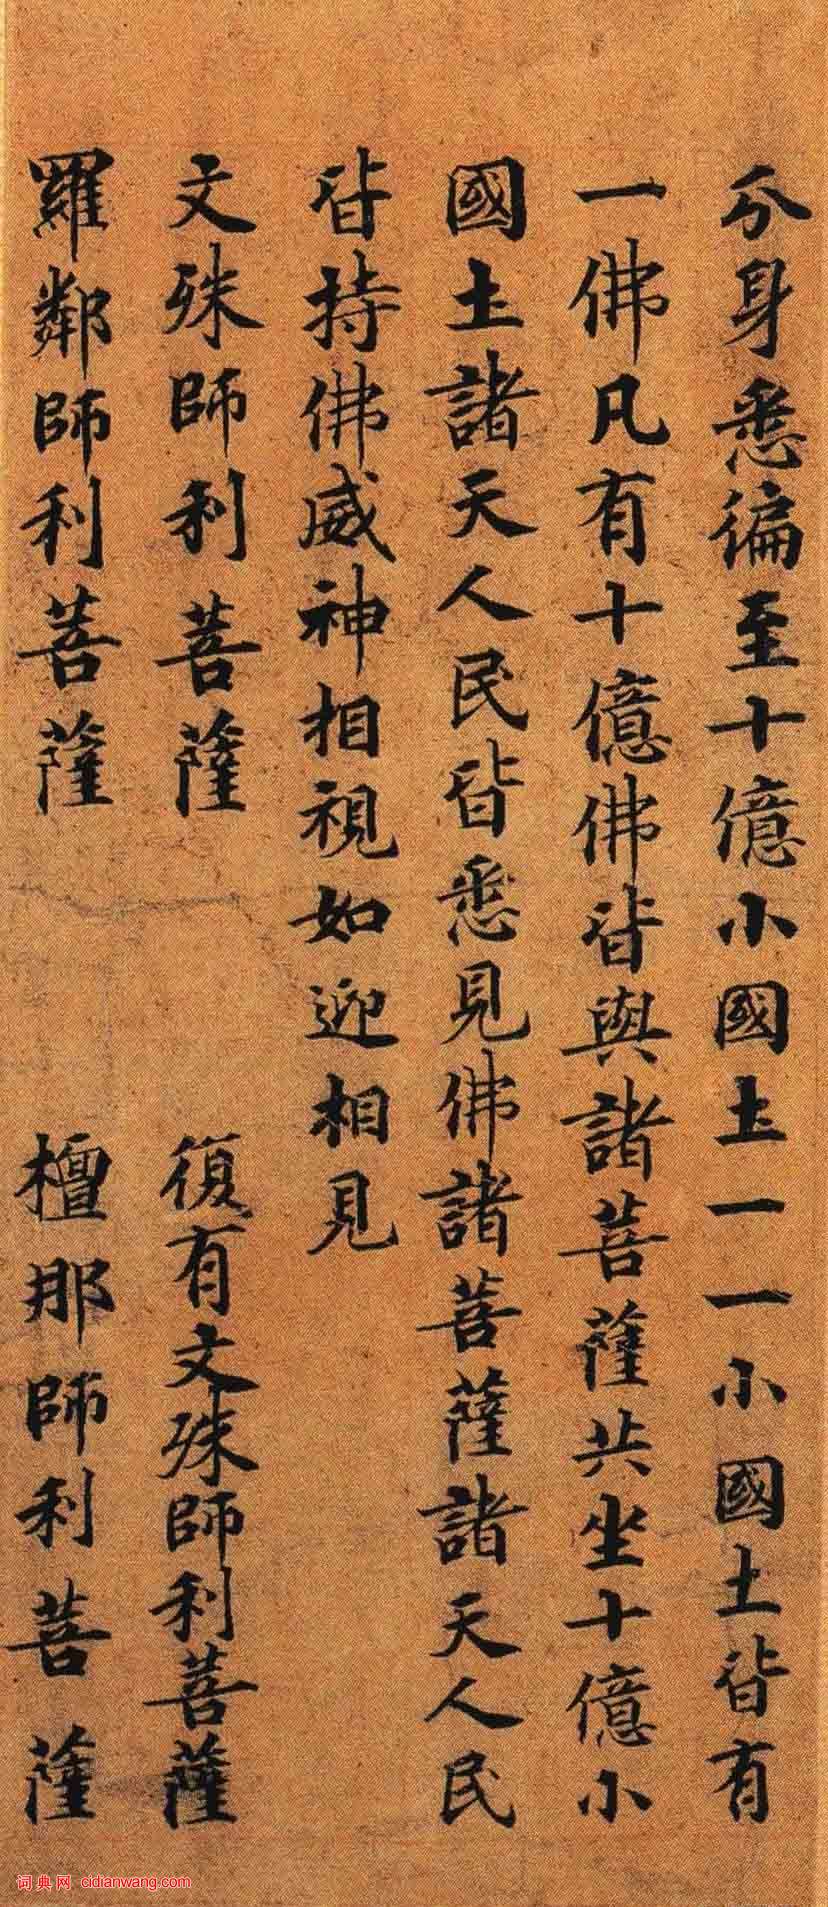 分身悉遍至十億小國土一一小國土皆有
一佛凡有十億佛皆與諸菩薩共坐十億小
國土諸天人民皆悉見佛諸菩薩諸天人民
皆持佛威神相視如迎相見
文殊師利菩薩 復有文殊師利菩薩
羅鄰師利菩薩 檀那師利菩薩
词典网 cidianwang.com